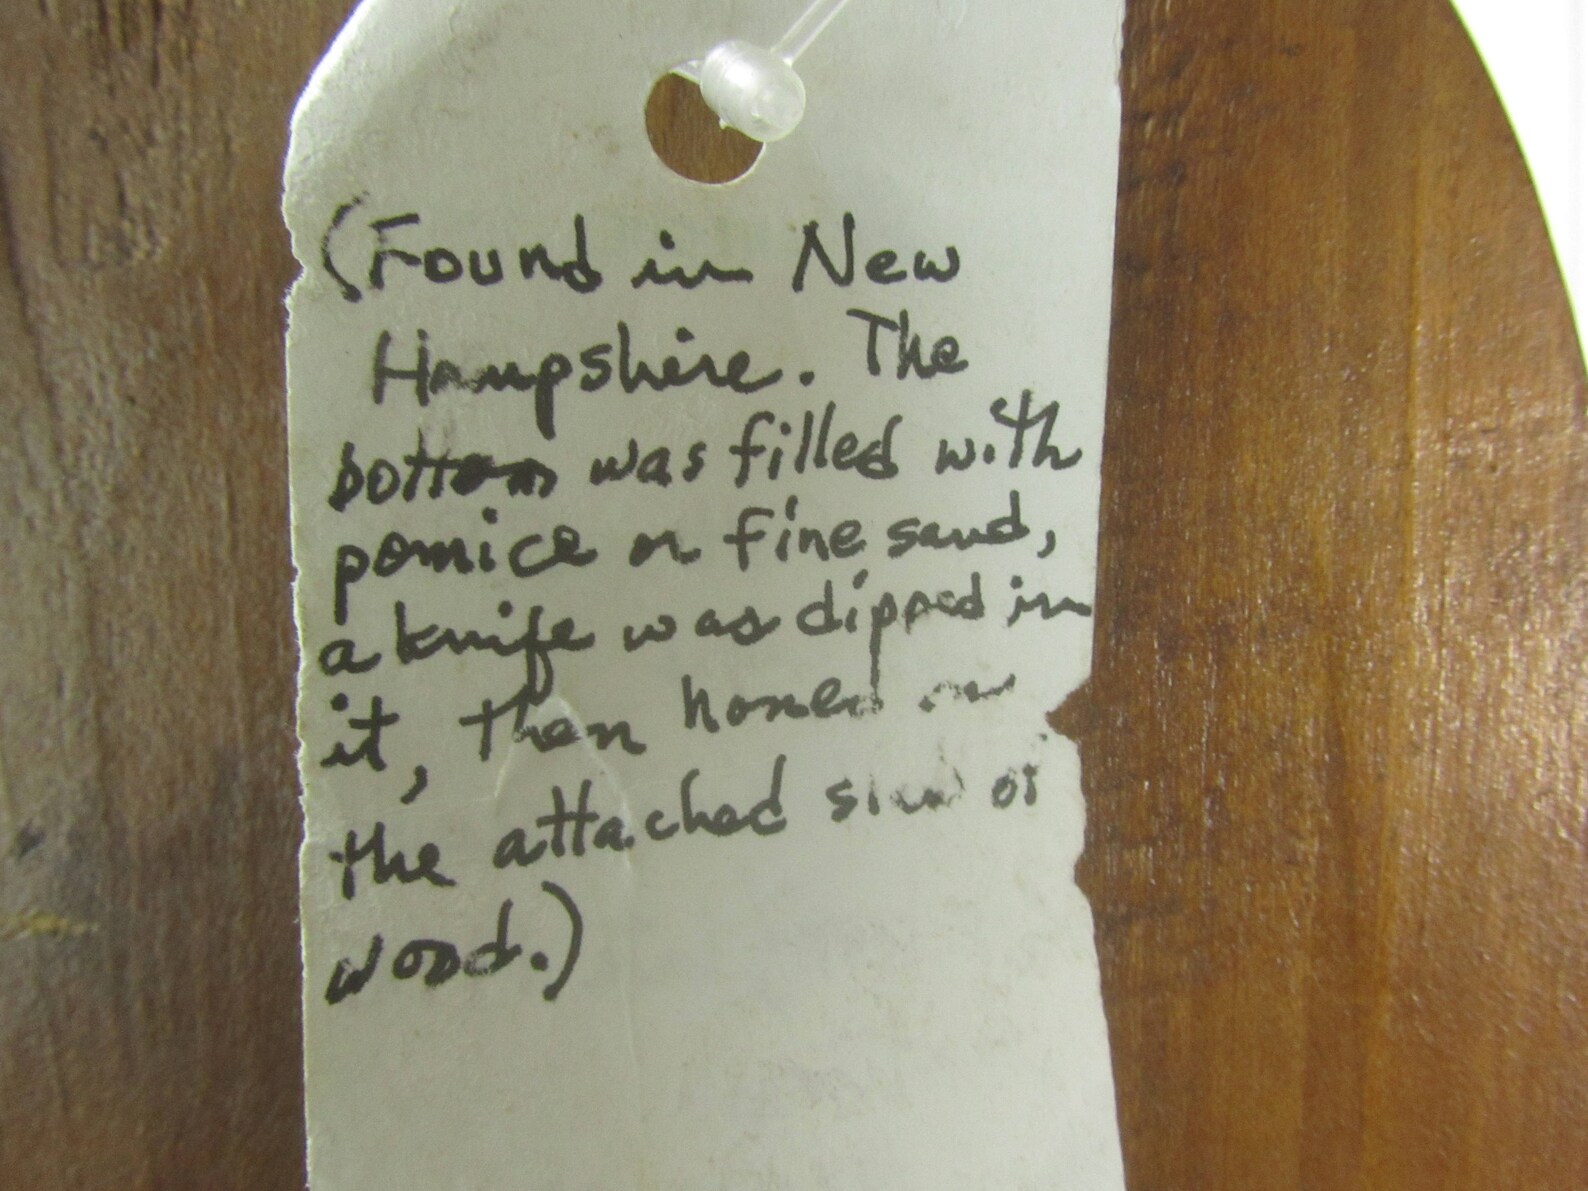 (Found in New
Hampshire. The
bottom was filled with
pomice or fine sand,
a knife was dipped in
it, then honed on
the attached of
wood.)